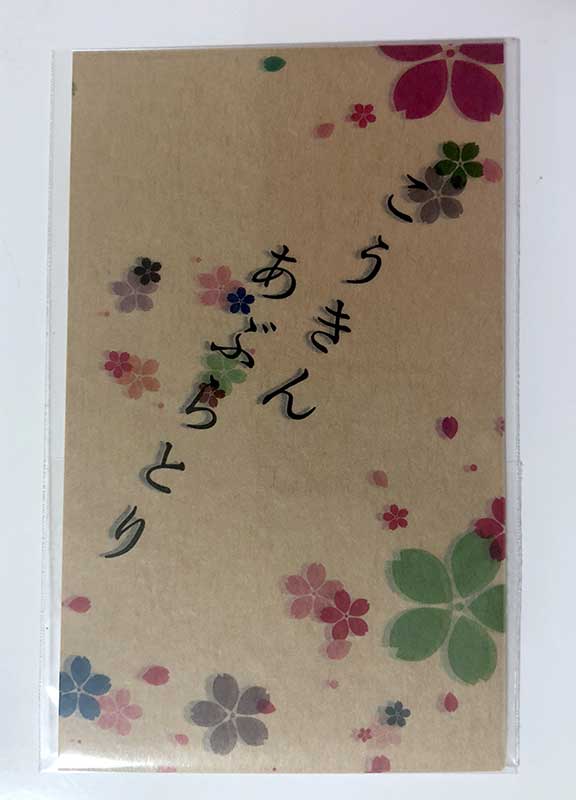 こうきん
あぶらとり